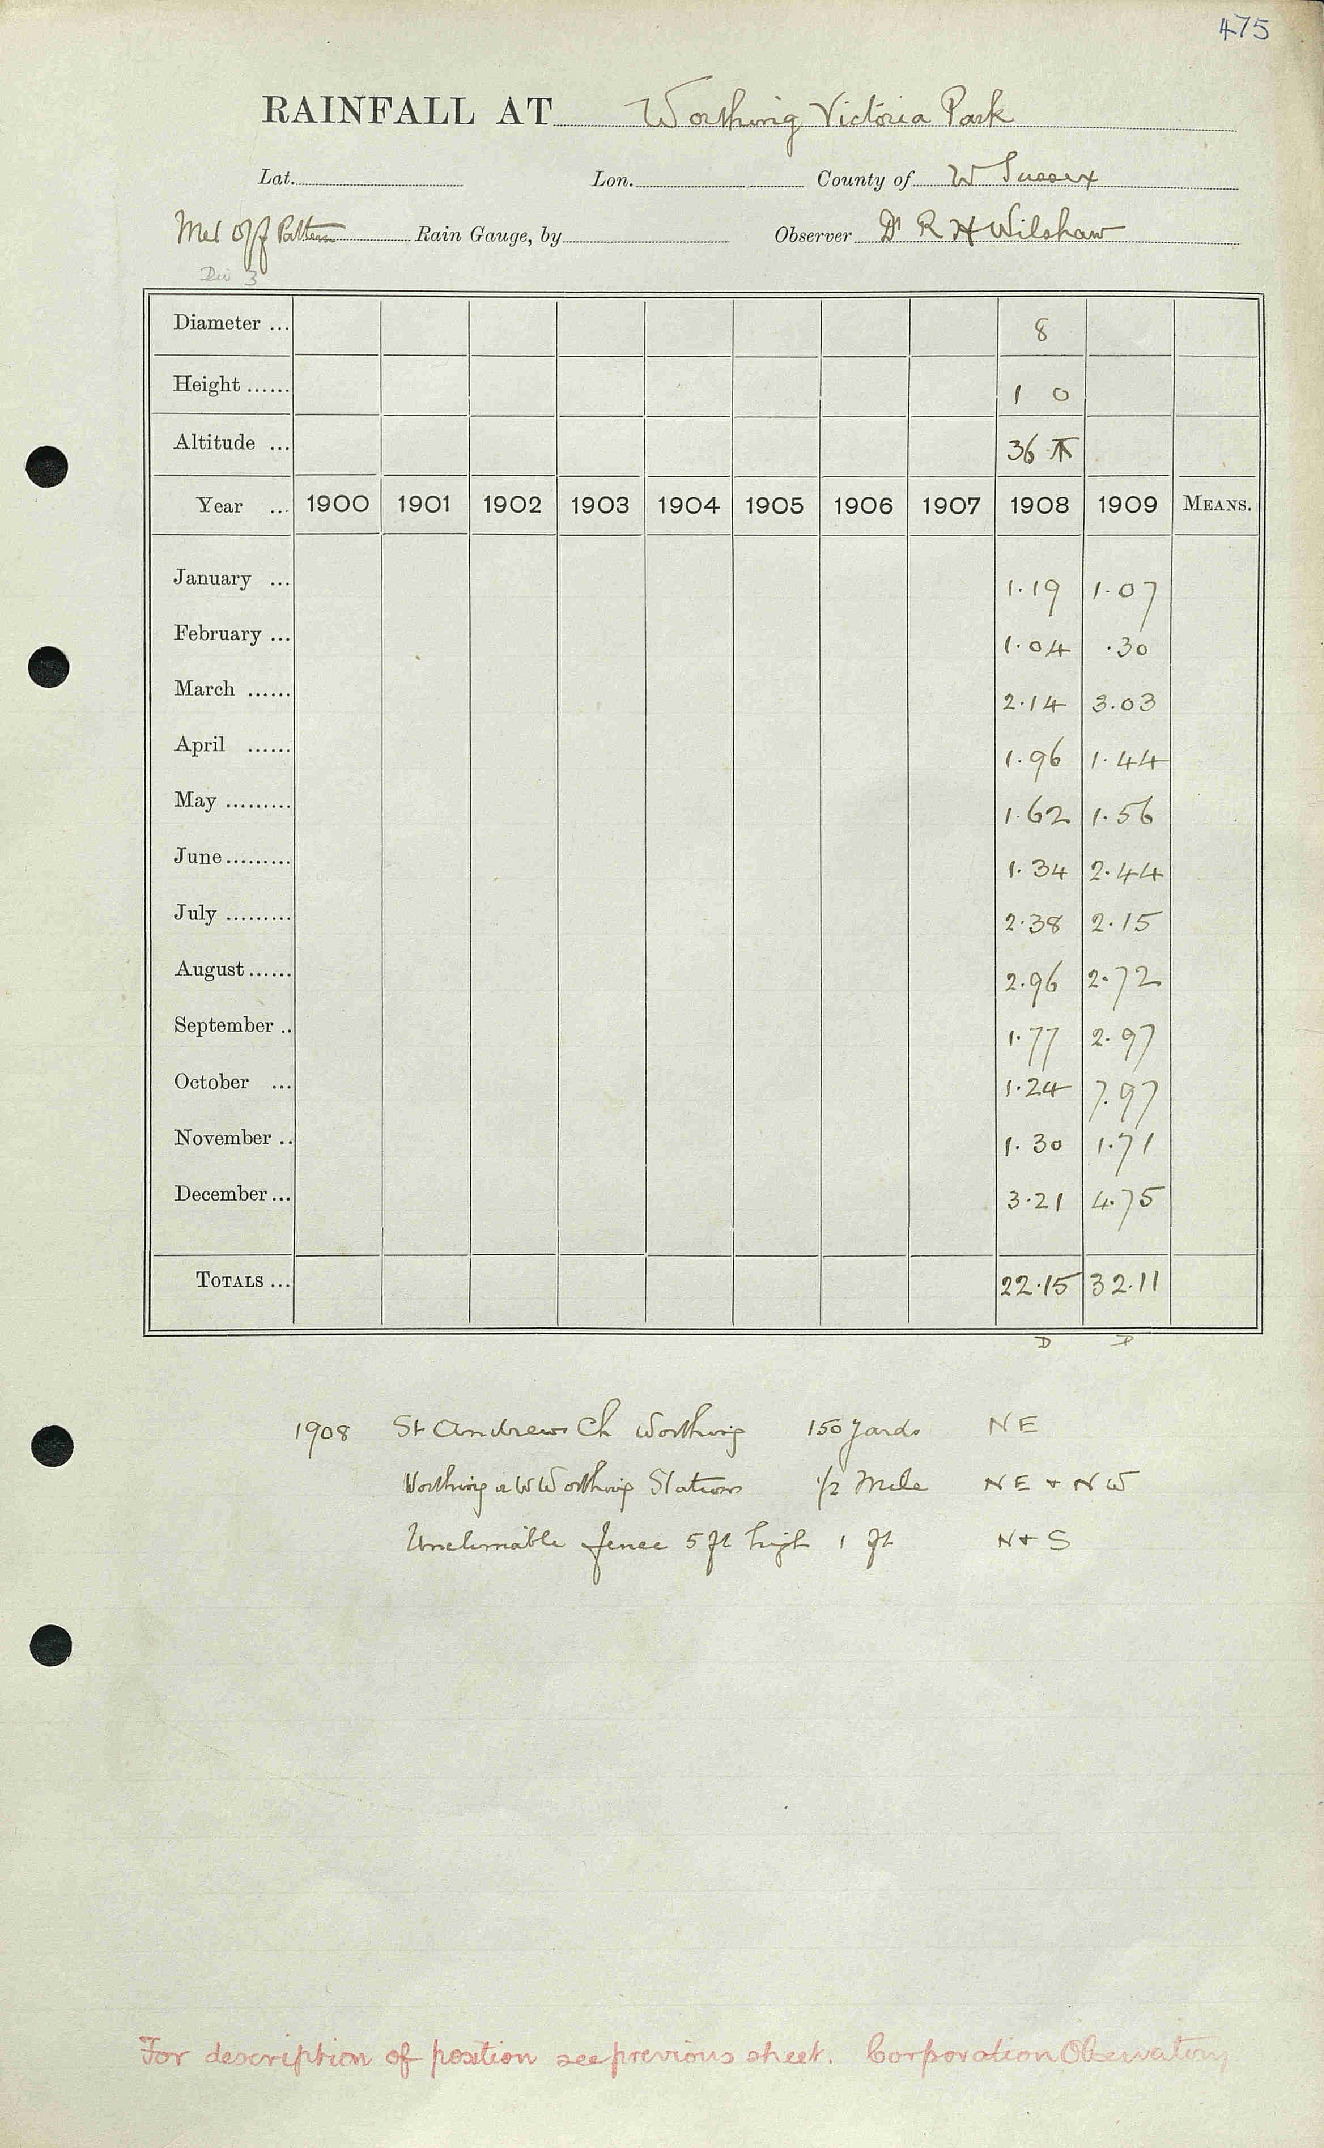 475
RAINFALL AT Worthing Victoria Park
Lat. Lon. County of W Sussex
Met Off Pattern Rain Gauge, by Observer Dr R H Wilshaw
Div 3
Diameter ... 8
Height ...... 1 0
Altitude ... 36
Year ... 1900 1901 1902 1903 1904 1905 1906 1907 1908 1909 MEANS.
January ... 1.19 1.07
February ... 1.04 .30
March ...... 2.14 3.03
April ...... 1.96 1.44
May ......... 1.62 1.56
June ......... 1.34 2.44
July ......... 2.38 2.15
August ...... 2.96 2.72
September .. 1.77 2.97
October ... 1.24 7.97
November .. 1.30 1.71
December ... 3.21 4.75
TOTALS ... 22.15 32.11
D D
1908 St Andrews Ch Worthing 150 yards NE
Worthing & W Worthing Stations 1/2 Mile NE + NW
Unclimable fence 5 ft high 1 ft N + S
For description of position see previous sheet. Corporation Observatory